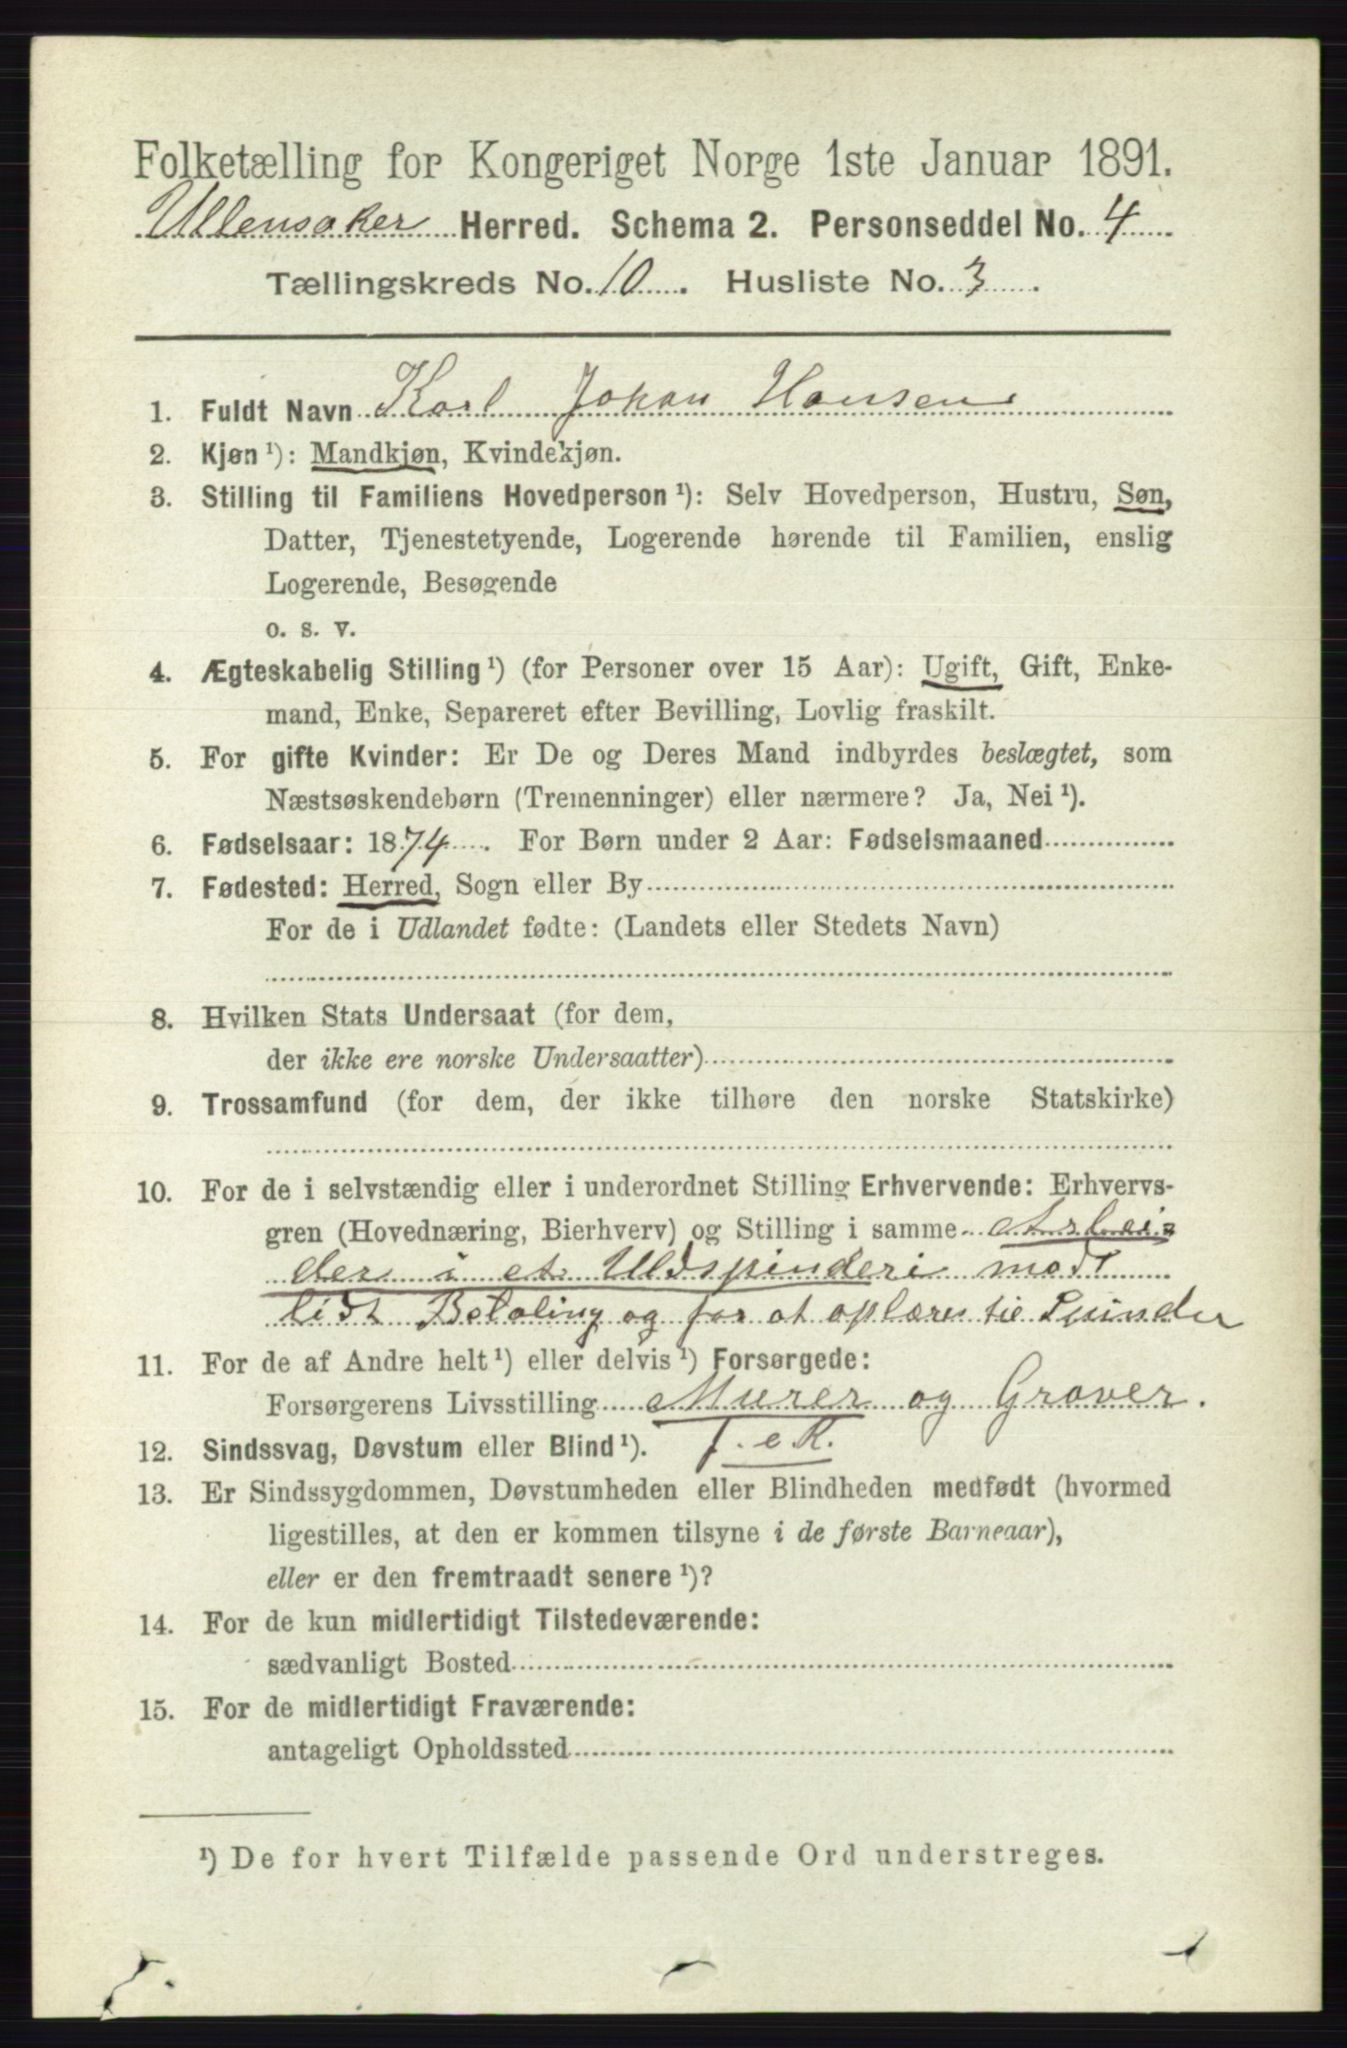 Folketælling for Kongeriget Norge 1ste Januar 1891.
Ullensaker Herred. Schema 2. Personseddel No. 4
Tællingskreds No. 10. Husliste No. 3.
1. Fuldt Navn Karl Johan Hansen
2. Kjøn ¹): Mandkjøn, Kvindekjøn.
3. Stilling til Familiens Hovedperson ¹): Selv Hovedperson, Hustru, Søn,
Datter, Tjenestetyende, Logerende hørende til Familien, enslig
Logerende, Besøgende
o. s. v.
4. Ægteskabelig Stilling ¹) (for Personer over 15 Aar): Ugift, Gift, Enke-
mand, Enke, Separeret efter Bevilling, Lovlig fraskilt.
5. For gifte Kvinder: Er De og Deres Mand indbyrdes beslægtet, som
Næstsøskendebørn (Tremenninger) eller nærmere? Ja, Nei ¹).
6. Fødselsaar: 1874. For Børn under 2 Aar: Fødselsmaaned
7. Fødested: Herred, Sogn eller By
For de i Udlandet fødte: (Landets eller Stedets Navn)
8. Hvilken Stats Undersaat (for dem,
der ikke ere norske Undersaatter)
9. Trossamfund (for dem, der ikke tilhøre den norske Statskirke)
10. For de i selvstændig eller i underordnet Stilling Erhvervende: Erhvervs-
gren (Hovednæring, Bierhverv) og Stilling i samme Arbei-
der i et Uldspinderi modt
lidt Betaling og for at oplæres til Spinder
11. For de af Andre helt ¹) eller delvis ¹) Forsørgede:
Forsørgerens Livsstilling Murer og Graver.
12. Sindssvag, Døvstum eller Blind ¹).
13. Er Sindssygdommen, Døvstumheden eller Blindheden medfødt (hvormed
ligestilles, at den er kommen tilsyne i de første Barneaar),
eller er den fremtraadt senere ¹)?
14. For de kun midlertidigt Tilstedeværende:
sædvanligt Bosted
15. For de midlertidigt Fraværende:
antageligt Opholdssted
¹) De for hvert Tilfælde passende Ord understreges.